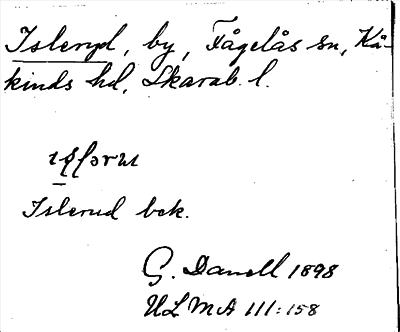 Isleryd, by, Fågelås sn, Kå-
kinds hd, Skarab. l.
Islerud bek.
G. Danell 1898
ULMA 111:158